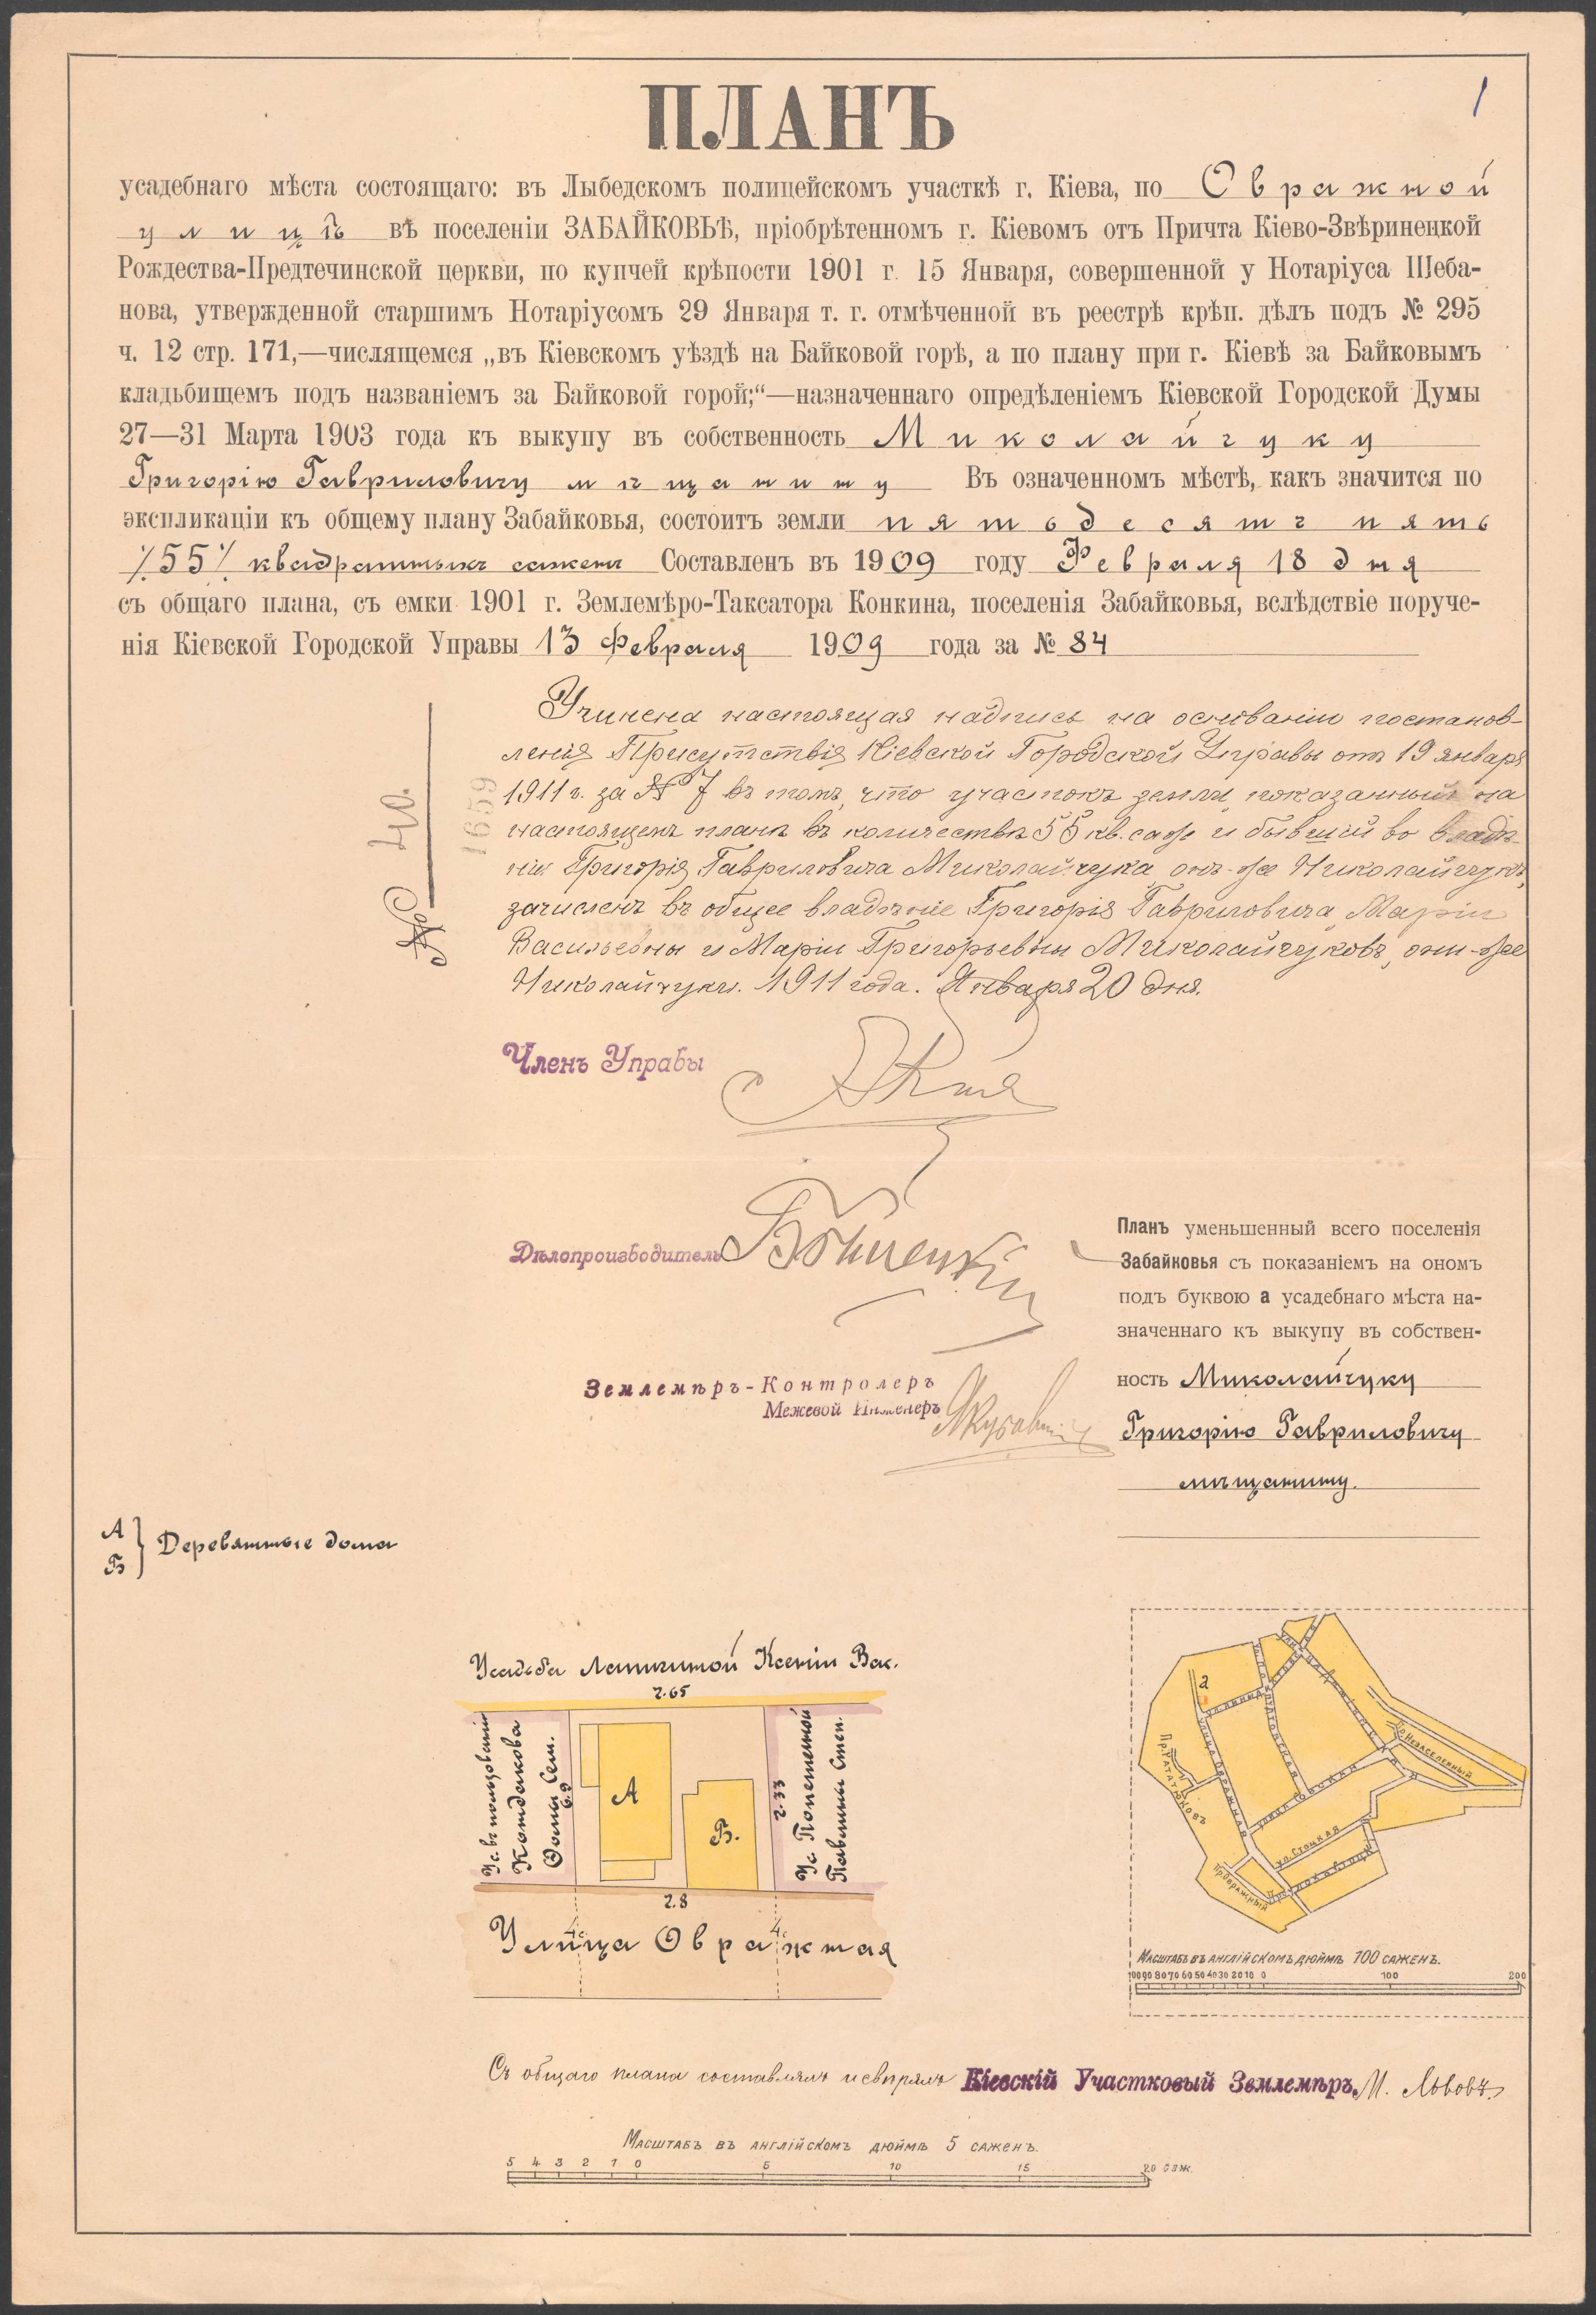 1
ПЛАНЪ
усадебнаго мѣста состоящаго: въ Лыбедскомъ полицейскомъ участкѣ г. Кіева, по Овражной
улицѣ въ поселеніи ЗАБАЙКОВЬѢ, пріобрѣтенномъ г. Кіевомъ отъ Причта Кіево-Звѣринецкой
Рождества-Предтечинской церкви, по купчей крѣпости 1901 г. 15 Января, совершенной у Нотаріуса Шеба-
нова, утвержденной старшимъ Нотаріусомъ 29 Января т. г. отмѣченной въ реестрѣ крѣп. дѣлъ подъ № 295
ч. 12 стр. 171,—числящемся „въ Кіевскомъ уѣздѣ на Байковой горѣ, а по плану при г. Кіевѣ за Байковымъ
кладьбищемъ подъ названіемъ за Байковой горой;“—назначеннаго опредѣленіемъ Кіевской Городской Думы
27—31 Марта 1903 года къ выкупу въ собственность Миколайчуку
Григорію Гавриловичу мѣщанину Въ означенномъ мѣстѣ, какъ значится по
экспликаціи къ общему плану Забайковья, состоитъ земли пятьдесятъ пять
٪55٪ квадратныхъ сажень Составленъ въ 1909 году Февраля 18 дня
съ общаго плана, съ емки 1901 г. Землемѣро-Таксатора Конкина, поселенія Забайковья, вслѣдствіе поруче-
нія Кіевской Городской Управы 13 Февраля 1909 года за № 84
№ 40.
1659
Учинена настоящая надпись на основаніи постанов-
ленія Присутствія Кіевской Городской Управы отъ 19 января
1911 г. за № 7 въ томъ, что участокъ земли, показанный на
настоящемъ планѣ въ количествѣ 55 кв. саж и бывшій во владѣ-
ніи Григорія Гавриловича Миколайчука, онъ-же Николайчукъ,
зачисленъ въ общее владѣніе Григорія Гавриловича, Маріи
Васильевны и Маріи Григорьевны Миколайчуковъ, они-же
Николайчуки. 1911 года. Января 20 дня.
Членъ Управы
Дѣлопроизводитель
Землемѣръ-Контролеръ
Межевой Инженеръ
Планъ уменьшенный всего поселенія
Забайковья съ показаніемъ на ономъ
подъ буквою а усадебнаго мѣста на-
значеннаго къ выкупу въ собствен-
ность Миколайчуку
Григорію Гавриловичу
мѣщанину.
А
Б } Деревянные дома
Усадьба Ксеніи Вас.
7.65
Ус. въ пользованіи
Кондакова
Ѳомы Сем.
6.9
А
Б.
7.33
Ус
Павлины Степ.
7.8
4с
4с
Улица Овражная
а
улица Овражная
Пр. Рататюковъ
ул. Стоцкая
Пр. Овражный
Пр. Незаселенный
Масштабъ въ англійскомъ дюймѣ 100 саженъ.
100 90 80 70 60 50 40 30 20 10 0 100 200
Съ общаго плана составлялъ и свѣрялъ Кіевскій Участковый Землемѣръ М. Львовъ
Масштабъ въ англійскомъ дюймѣ 5 саженъ.
5 4 3 2 1 0 5 10 15 20 саж.